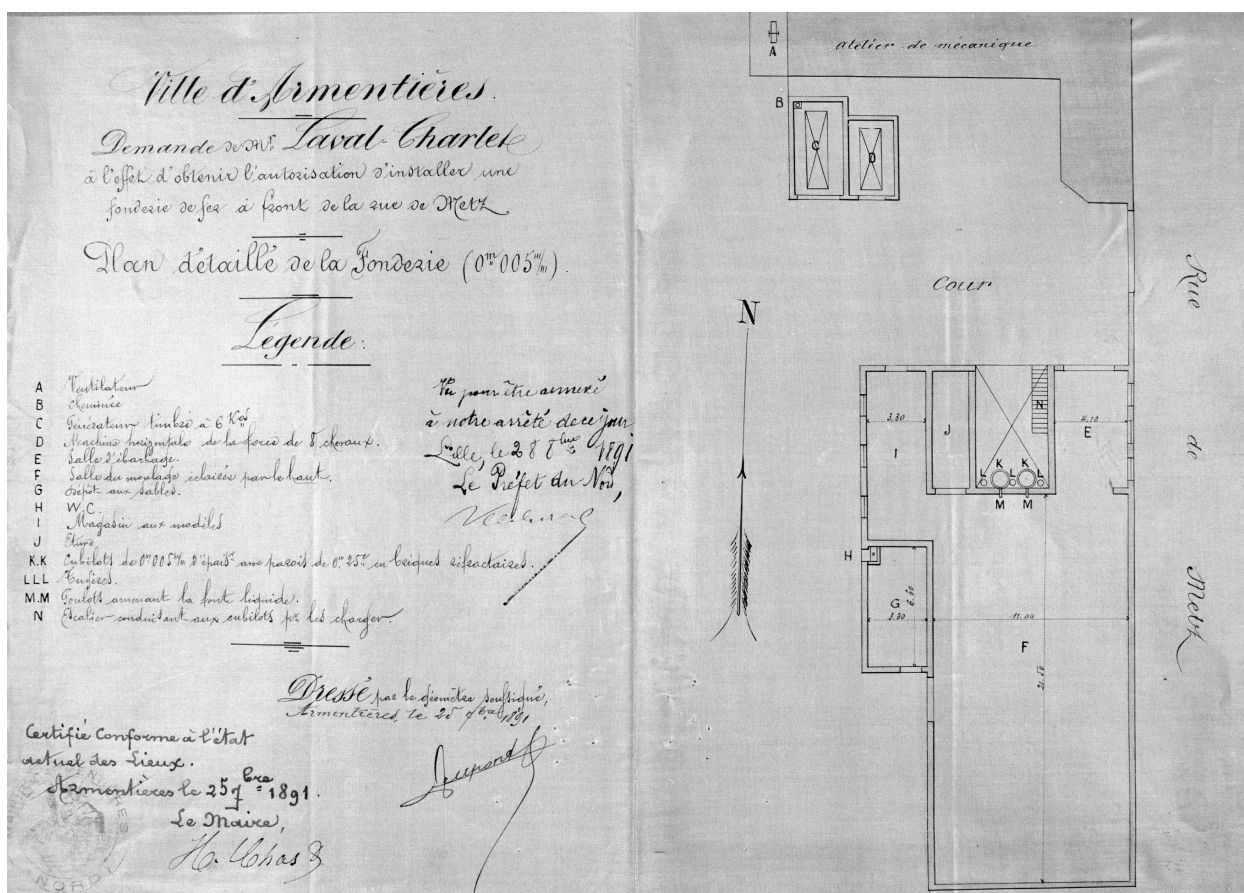 Ville d'Armentières.
Demande de Mr. Laval-Charlet
à l'effet d'obtenir l'autorisation d'installer une
fonderie de fer à front de la rue de Metz
Plan détaillé de la Fonderie (0m005m/m).
Légende:
A Ventilateur
B Cheminée
C Générateur timbré à 6 Kos
D Machine horizontale de la force de 8 chevaux.
E Salle d'ébarbage.
F Salle du moulage éclairée par le haut.
G Dépôt aux sables.
H W.C.
I Magasin aux modèles
J Etuve
K.K Cubilots de 0m005m/m d'épaisr avec parois de 0m25c/ en briques réfractaires.
LLL Tuyères.
M.M Goulots amenant la fonte liquide.
N Escalier conduisant aux cubilots pr les charger.
Vu pour être annexé
à notre arrêté de ce jour
Lille, le 28 8bre 1891
Le Préfet du Nord,
Dressé par le géomètre soussigné,
Armentières, le 25 7bre 1891
Dupont
Certifié Conforme à l'état
actuel des Lieux.
Armentières le 25 7bre 1891.
Le Maire,
NORD
atelier de mécanique
A
B
C
D
Cour
Rue de Metz
N
3.30
I
J
N
4.10
E
L K L K L
M M
H
G
6.60
3.30
11.00
F
21.50